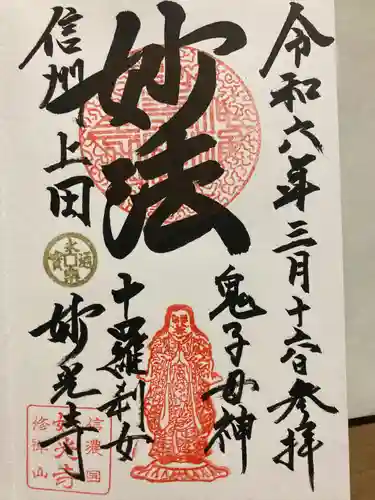 令和六年三月十六日参拝
妙法
鬼子母神
十羅刹女
信州上田
妙光寺
永楽通宝
信濃國
妙光寺